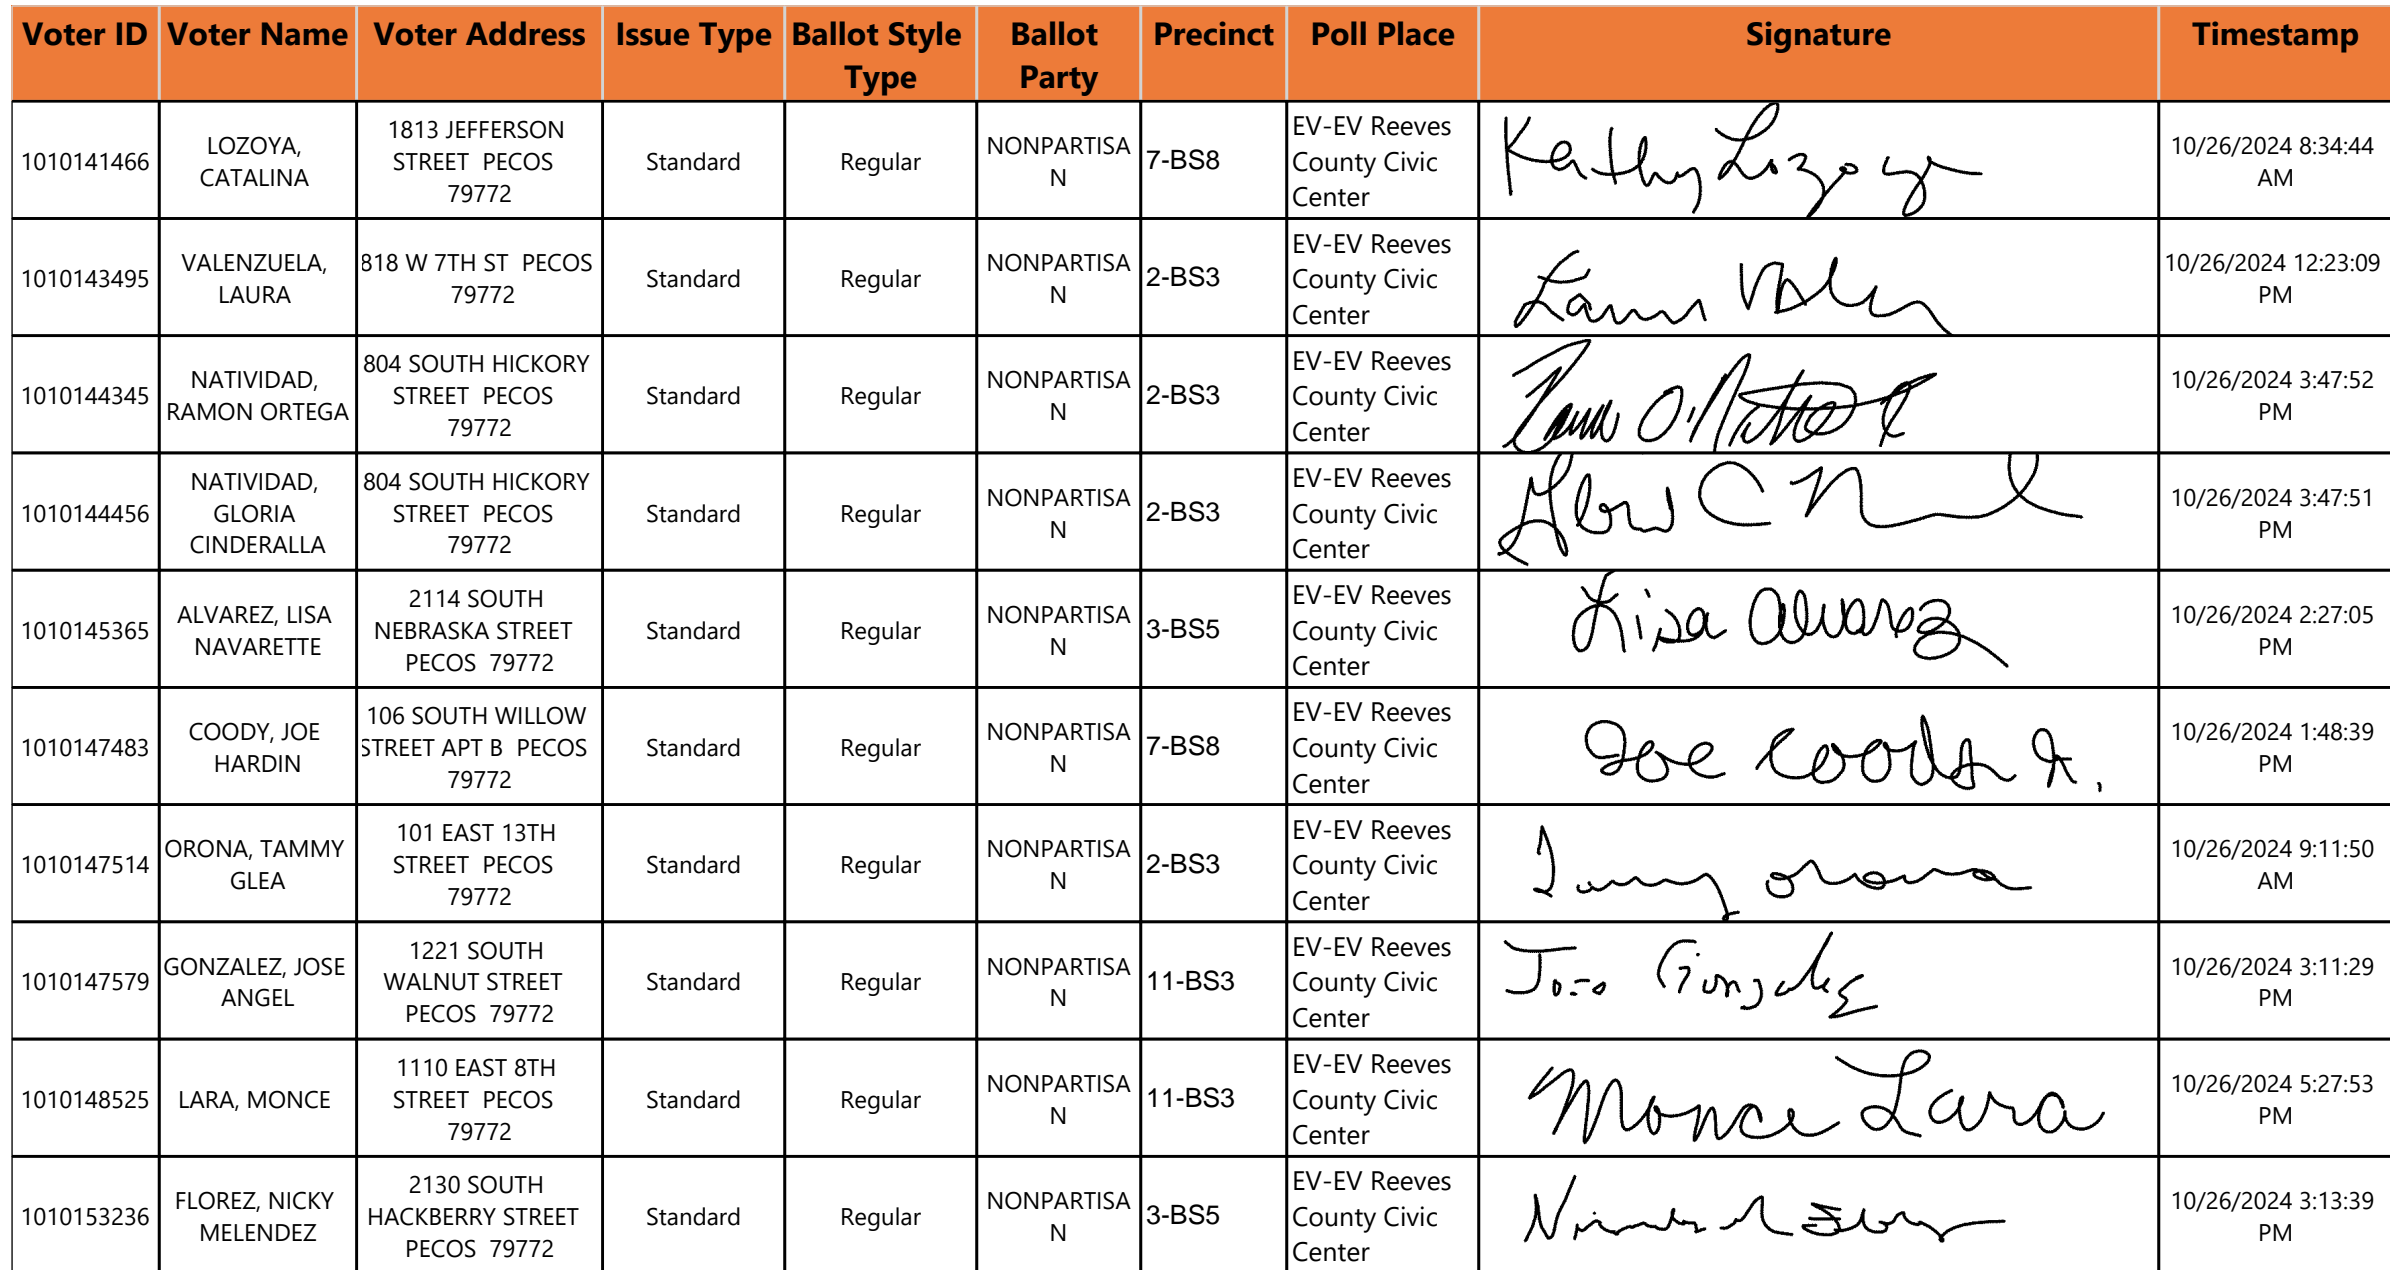 Voter ID Voter Name Voter Address Issue Type Ballot Style Type Ballot Party Precinct Poll Place Signature Timestamp
1010141466 LOZOYA, CATALINA 1813 JEFFERSON STREET PECOS 79772 Standard Regular NONPARTISAN 7-BS8 EV-EV Reeves County Civic Center Kathy Lozoya 10/26/2024 8:34:44 AM
1010143495 VALENZUELA, LAURA 818 W 7TH ST PECOS 79772 Standard Regular NONPARTISAN 2-BS3 EV-EV Reeves County Civic Center 10/26/2024 12:23:09 PM
1010144345 NATIVIDAD, RAMON ORTEGA 804 SOUTH HICKORY STREET PECOS 79772 Standard Regular NONPARTISAN 2-BS3 EV-EV Reeves County Civic Center 10/26/2024 3:47:52 PM
1010144456 NATIVIDAD, GLORIA CINDERALLA 804 SOUTH HICKORY STREET PECOS 79772 Standard Regular NONPARTISAN 2-BS3 EV-EV Reeves County Civic Center 10/26/2024 3:47:51 PM
1010145365 ALVAREZ, LISA NAVARETTE 2114 SOUTH NEBRASKA STREET PECOS 79772 Standard Regular NONPARTISAN 3-BS5 EV-EV Reeves County Civic Center Lisa Alvarez 10/26/2024 2:27:05 PM
1010147483 COODY, JOE HARDIN 106 SOUTH WILLOW STREET APT B PECOS 79772 Standard Regular NONPARTISAN 7-BS8 EV-EV Reeves County Civic Center Joe Coody Jr. 10/26/2024 1:48:39 PM
1010147514 ORONA, TAMMY GLEA 101 EAST 13TH STREET PECOS 79772 Standard Regular NONPARTISAN 2-BS3 EV-EV Reeves County Civic Center Tammy Orona 10/26/2024 9:11:50 AM
1010147579 GONZALEZ, JOSE ANGEL 1221 SOUTH WALNUT STREET PECOS 79772 Standard Regular NONPARTISAN 11-BS3 EV-EV Reeves County Civic Center Jose Gonzalez 10/26/2024 3:11:29 PM
1010148525 LARA, MONCE 1110 EAST 8TH STREET PECOS 79772 Standard Regular NONPARTISAN 11-BS3 EV-EV Reeves County Civic Center Monce Lara 10/26/2024 5:27:53 PM
1010153236 FLOREZ, NICKY MELENDEZ 2130 SOUTH HACKBERRY STREET PECOS 79772 Standard Regular NONPARTISAN 3-BS5 EV-EV Reeves County Civic Center 10/26/2024 3:13:39 PM